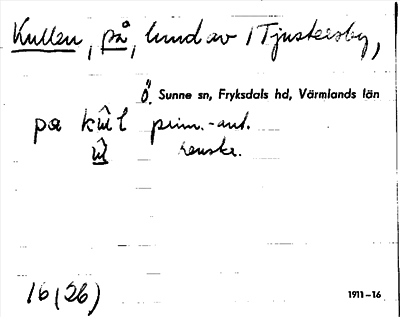 Kullen, på, lund av 1 Tjustersby,
Ö. Sunne sn, Fryksdals hd, Värmlands län
prim.-ant.
renskr.
16 (26)
1911-16